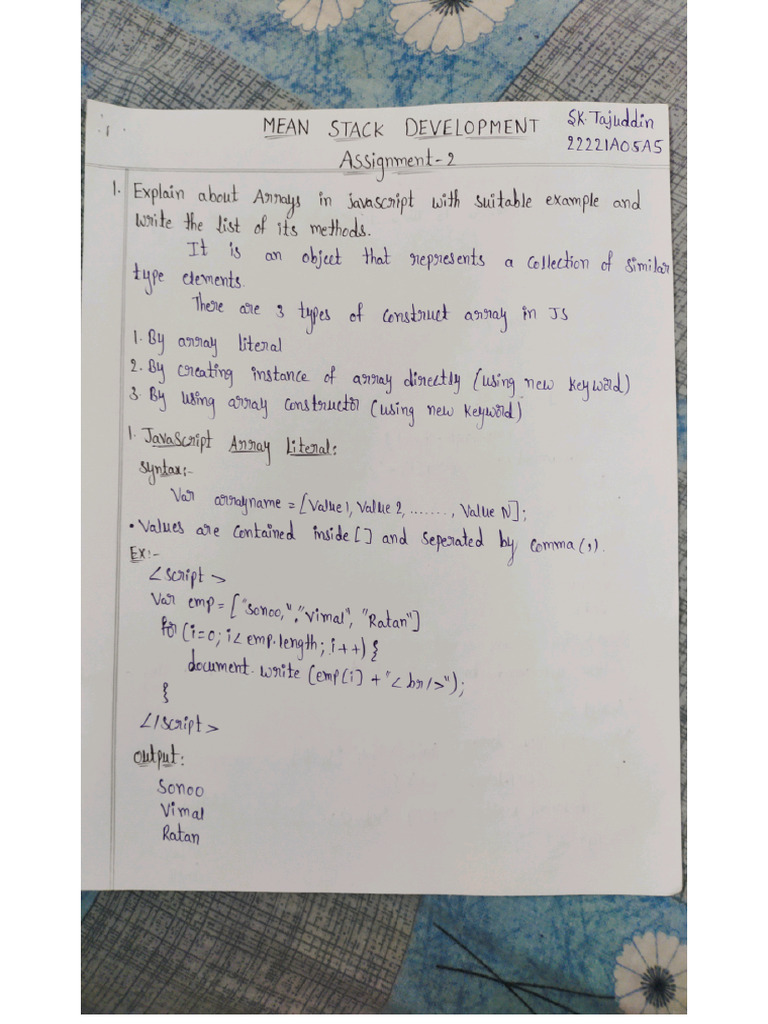 MEAN STACK DEVELOPMENT
SK.Tajuddin
22221A05A5
Assignment-2
1. Explain about Arrays in javascript with suitable example and
write the list of its methods.
It is an object that represents a collection of similar
type elements.
There are 3 types of construct array in JS
1. By array literal
2. By creating instance of array directly (using new keyword)
3. By using array constructor (using new keyword)
1. JavaScript Array Literal:
Syntax:-
Var arrayname = [Value1, Value 2, ......., Value N];
• Values are contained inside [] and seperated by comma (,).
Ex:-
<script>
Var emp = ["Sonoo,","Vimal", "Ratan"]
for (i=0; i< emp.length; i++) {
document.write (emp(i] + "< br/>");
}
</script>
output:
Sonoo
Vimal
Ratan